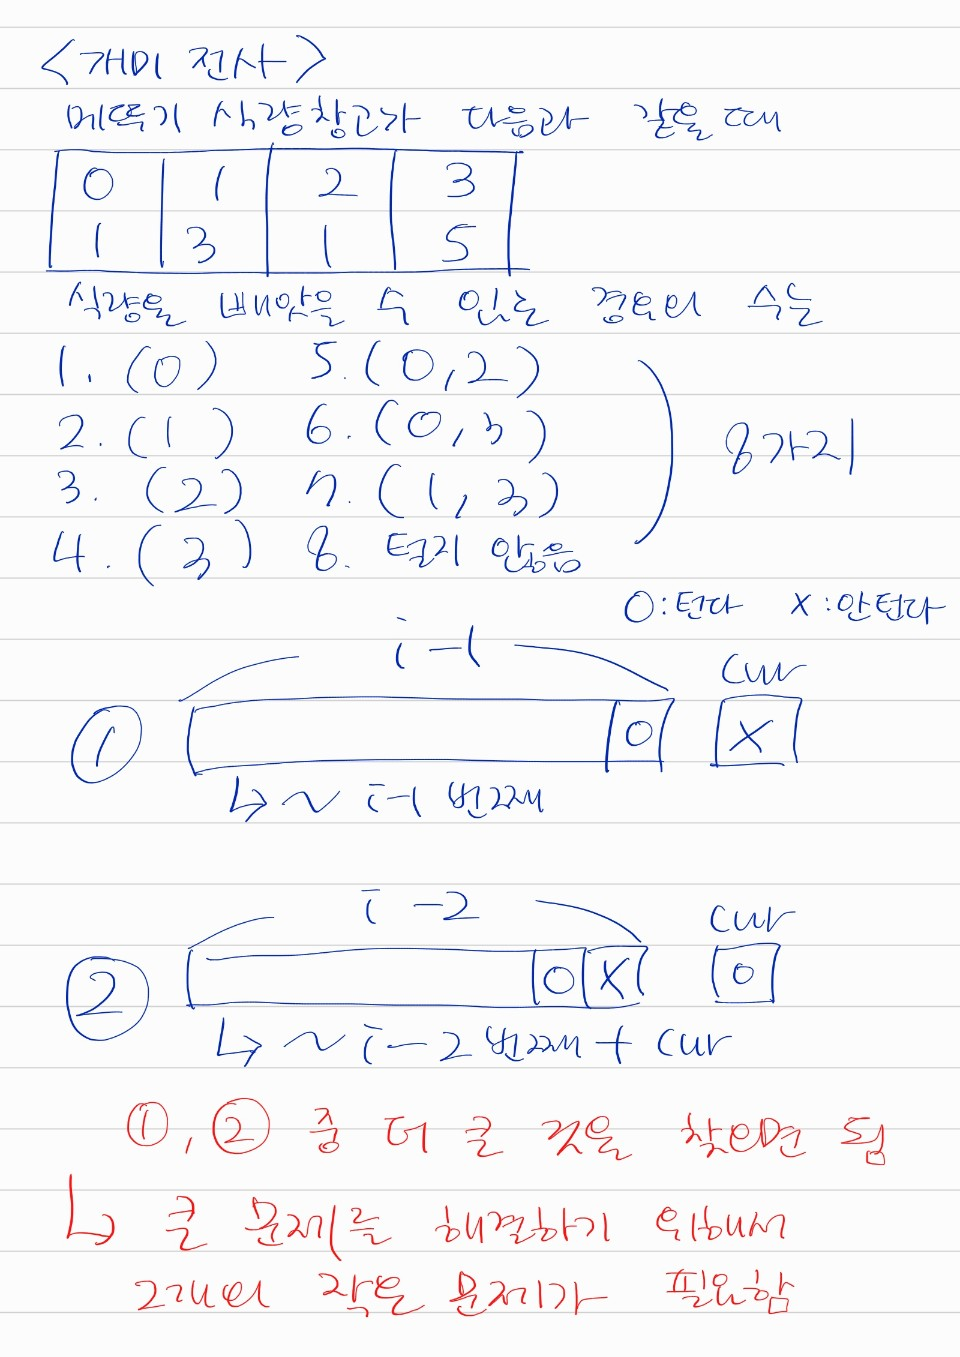 <개미 전사>
메뚝기 식량창고가 다음과 같을 때
0 1 2 3
1 3 1 5
식량을 빼앗을 수 있는 경우의 수는
1. (0) 5. (0,2)
2. (1) 6. (0,3)
3. (2) 7. (1,3) 8가지
4. (3) 8. 털지 않음
O:턴다 X:안턴다
i-1 cur
① O X
↳ ~ i-1 번째
i-2 cur
② O X O
↳ ~ i-2 번째 + cur
①, ② 중 더 큰 것을 찾으면 됨
↳ 큰 문제를 해결하기 위해서
2개의 작은 문제가 필요함